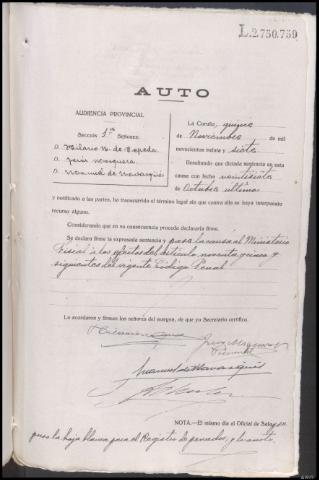 L.2.750.759
AUTO
AUDIENCIA PROVINCIAL
Sección 1ª Señores:
D. Hilario N. de Cepeda
D. Jesús Mosquera
D. Manuel de Navasqüés
La Coruña, quince
de Noviembre de mil
novecientos veinte y siete
Resultando que dictada sentencia en esta
causa con fecha veintisiete
de Octubre último
y notificado a las partes, ha transcurrido el término legal sin que contra ella se haya interpuesto
recurso alguno.
Considerando que en su consecuencia procede declararla firme.
Se declara firme la expresada sentencia y pase la causa al Ministerio
Fiscal a los efectos del artículo noventa y cinco y
siguientes del vigente Código Penal
Lo acordaron y firman los señores del margen, de que yo Secretario certifico.
Manuel de Navasqüés
NOTA.—El mismo día el Oficial de Sala
puso la hoja blanca para el Registro de penados, y lo anoto.